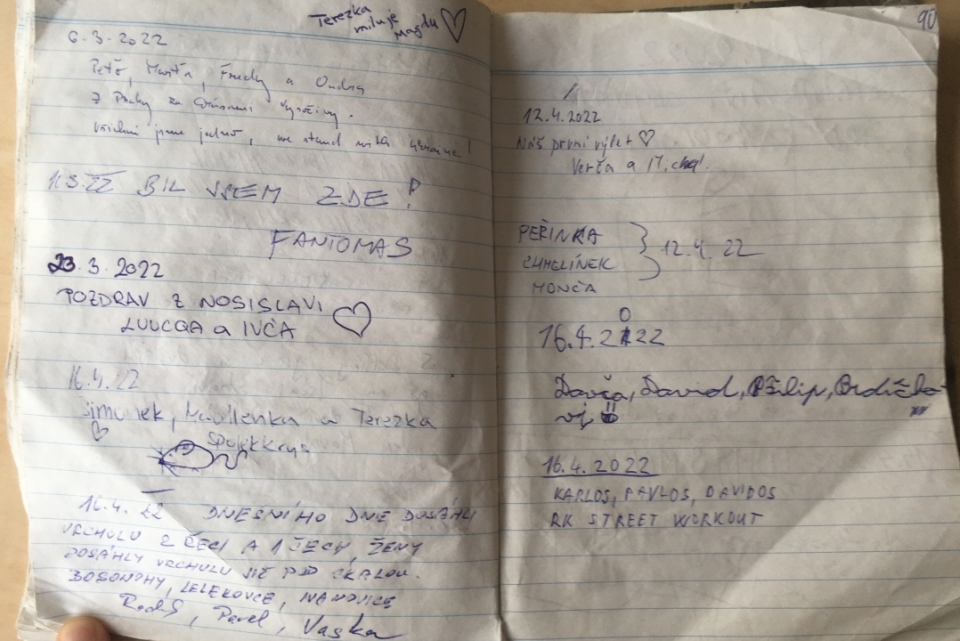 Terezka
miluje
Magdu
6.3.2022
Petr, Marťa, Fredy a Ondra
z
všichni jsme
1.3.22 BIL JSEM ZDE!
FANTOMAS
23.3.2022
POZDRAV Z NOSISLAVI
LUUCQA a IVČA
16.4.22
Šimonek, Madlenka a Terezka
16.4.22 DNEŠNÍHO DNE DOSÁHLI
VRCHOLU 2 ŘECI A 1 ČECH, ŽENY
DOSÁHLY VRCHOLU JIŽ POD SKALOU.
BOSONOHY, LELEKOVCE, IVANOVICE
Radš, Pavel, Vaska
90
12.4.2022
Náš první výlet
Verča a M.
PEŘINKA
CHMELÍNEK
MONČA
12.4.22
16.4.2022
Davča, David, Philip,
16.4.2022
KARLOS, PAVLOS, DAVIDOS
RK STREET WORKOUT